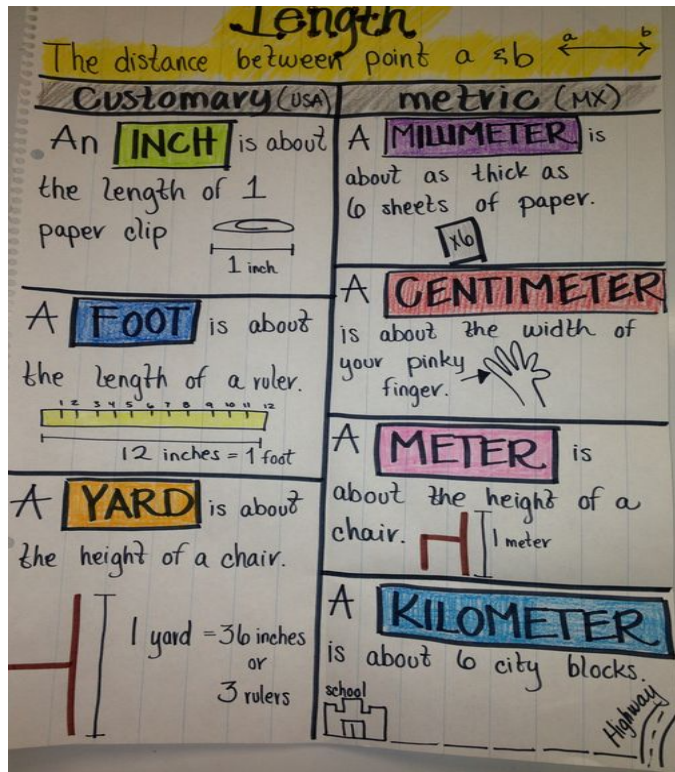 Length
The distance between point a & b
a b
Customary (USA)
An INCH is about
the length of 1
paper clip
1 inch
A FOOT is about
the length of a ruler.
1 2 3 4 5 6 7 8 9 10 11 12
12 inches = 1 foot
A YARD is about
the height of a chair.
1 yard = 36 inches
or
3 rulers
metric (MX)
A MILLIMETER is
about as thick as
6 sheets of paper.
x6
A CENTIMETER
is about the width of
your pinky
finger.
A METER is
about the height of a
chair.
1 meter
A KILOMETER
is about 6 city blocks.
school
Highway